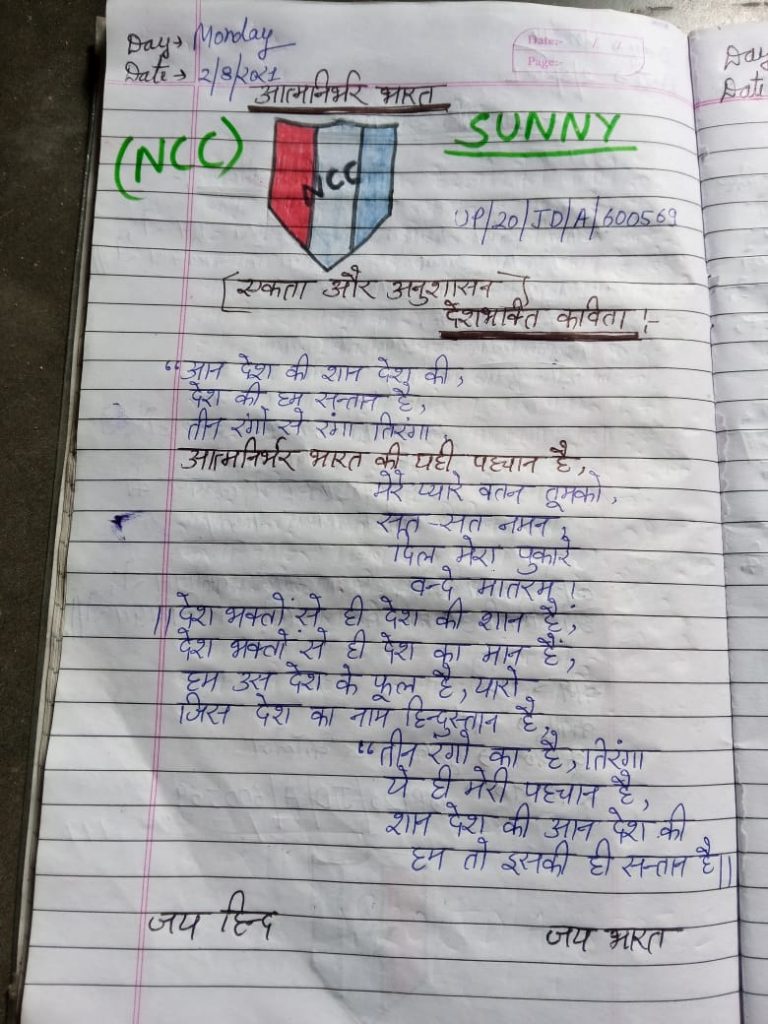 Day→ Monday
Date:-
Page:-
Date→ 2/8/2021
आत्मनिर्भर भारत
(NCC)
NCC
SUNNY
UP/20/JD/A/600569
[एकता और अनुशासन]
देशभक्ति कविता!-
"आन देश की शान देश की,
देश की हम सन्तान है,
तीन रंगो से रंगा तिरंगा,
आत्मनिर्भर भारत की यही पहचान है,
मेरे प्यारे वतन तूमको,
सत्-सत नमन,
दिल मेरा पुकारे
वन्दे मातरम्!
||देश भक्तों से ही देश की शान है,
देश भक्तों से ही देश का मान हैं,
हम उस देश के फूल है, यारो
जिस देश का नाम हिन्दुस्तान है,
"तीन रंगो का है, तिरंगा
ये ही मेरी पहचान है,
शान देश की आन देश की
हम तो इसकी ही सन्तान है||
जय हिन्द
जय भारत
Day
Date